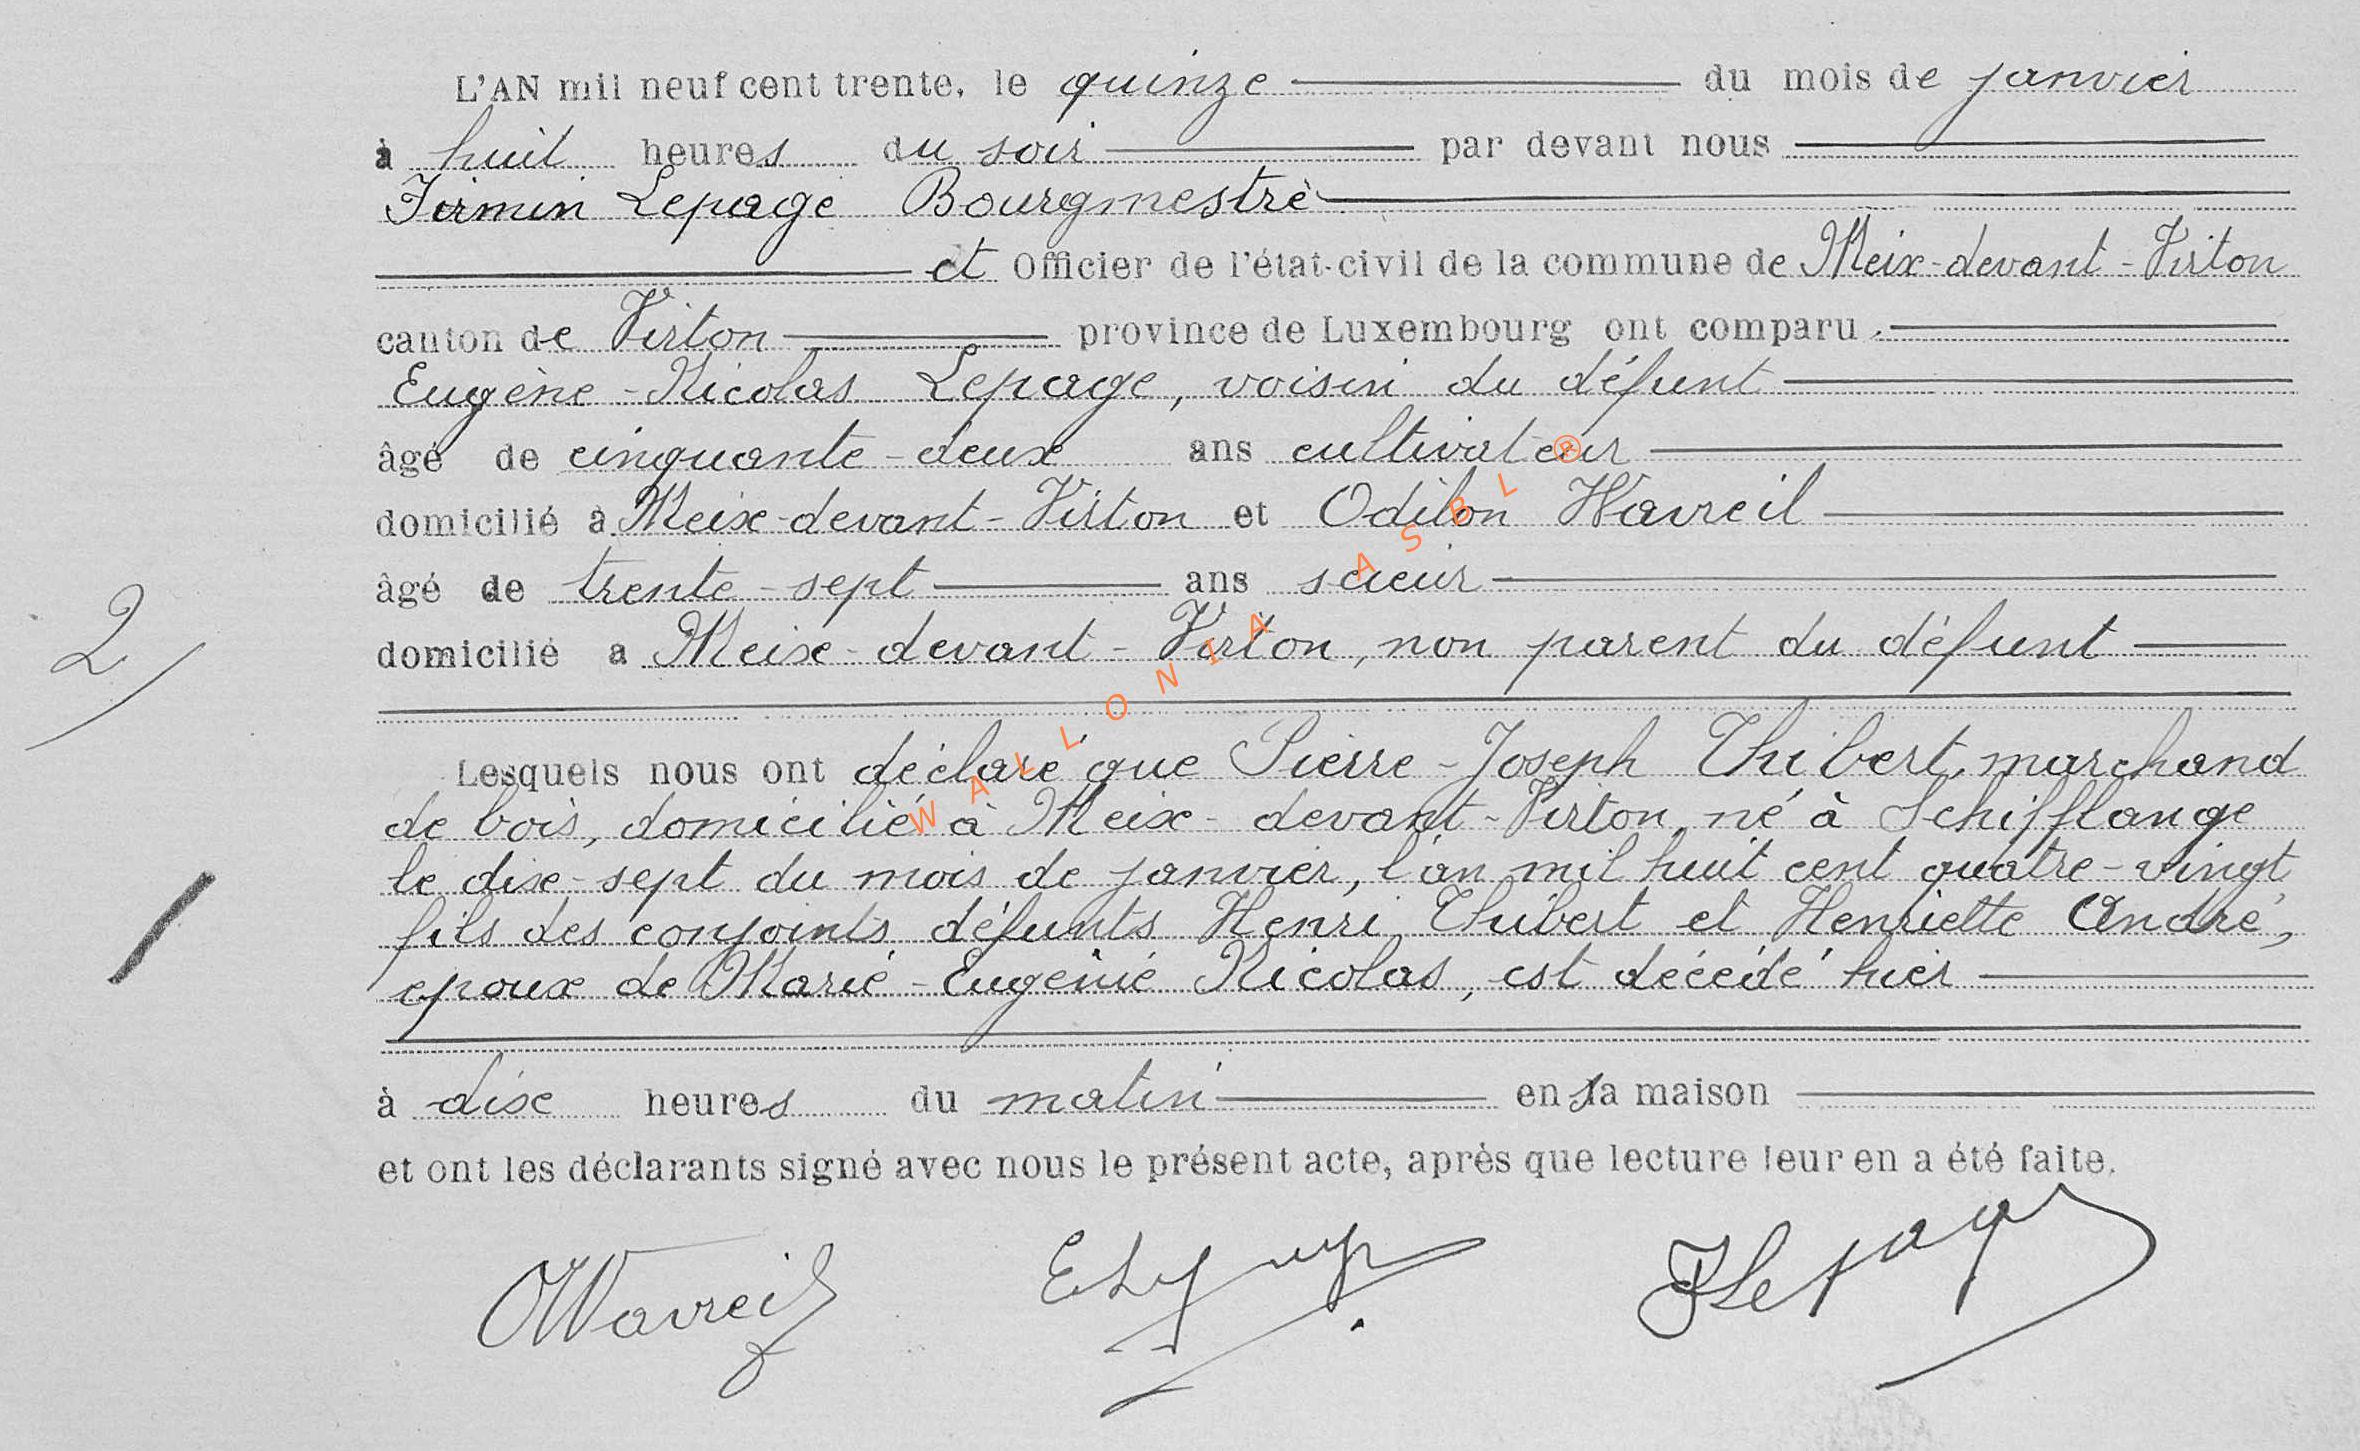 L'AN mil neuf cent trente, le quinze du mois de janvier
à huit heures du soir par devant nous
Firmin Lepage Bourgmestre
et Officier de l'état-civil de la commune de Meix-devant-Virton
canton de Virton province de Luxembourg ont comparu
Eugène-Nicolas Lepage, voisin du défunt
âgé de cinquante-deux ans cultivateur
domicilié à Meix-devant-Virton et Odilon Wavreil
âgé de trente-sept ans scieur
domicilié a Meix-devant-Virton, non parent du défunt
2
Lesquels nous ont déclaré que Pierre-Joseph Thibert, marchand
de bois, domicilié à Meix-devant-Virton, né à Schifflange
le dix-sept du mois de janvier, l'an mil huit cent quatre-vingt
fils des conjoints défunts Henri Thibert et Henriette André,
epoux de Marie-Eugénie Nicolas, est décédé hier
à dix heures du matin en sa maison
et ont les déclarants signé avec nous le présent acte, après que lecture leur en a été faite.
OWavreil FLepage
WALLONIA ASBL ®